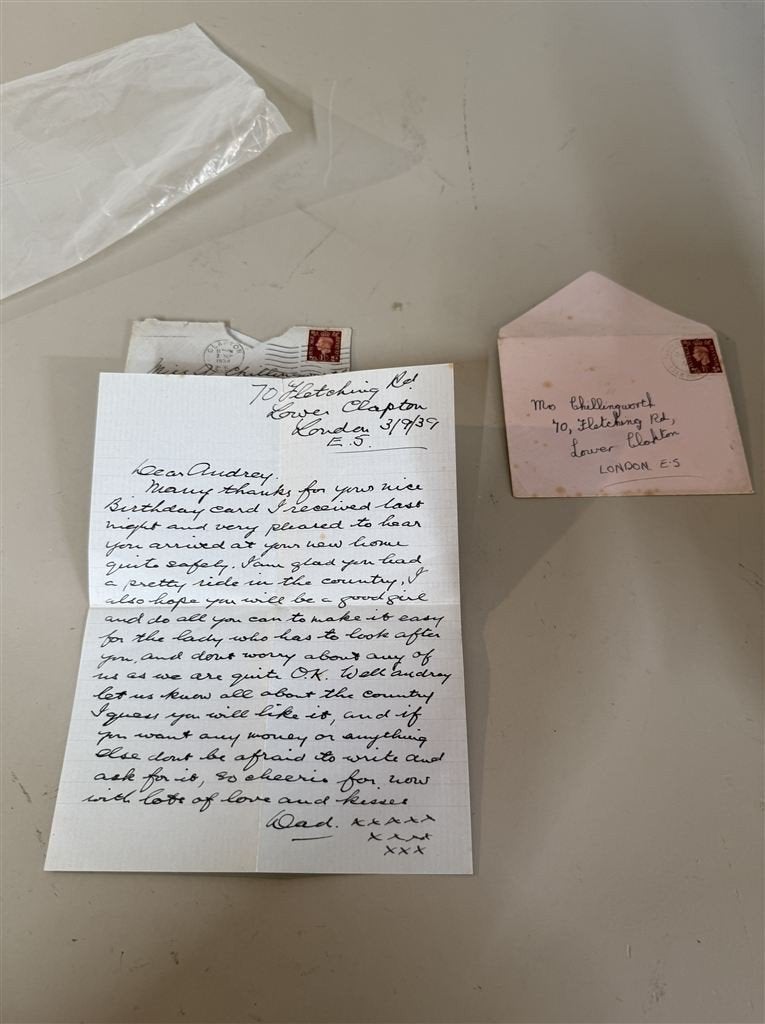 CLAPTON
Miss A Chilling
70 Fletching Rd
Lower Clapton
London 3/9/39
E.5.
Dear Audrey.
Many thanks for your nice
Birthday card I received last
night and very pleased to hear
you arrived at your new home
quite safely. I am glad you had
a pretty ride in the country, I
also hope you will be a good girl
and do all you can to make it easy
for the lady who has to look after
you, and dont worry about any of
us as we are quite O.K. Well Audrey
let us know all about the country
I guess you will like it, and if
you want any money or anything
else dont be afraid to write and
ask for it, so cheerio for now
with lots of love and kisses
Dad. xxxxx
xxxx
xxx
Mr Chillingworth
70, Fletching Rd,
Lower Clapton
LONDON E.5